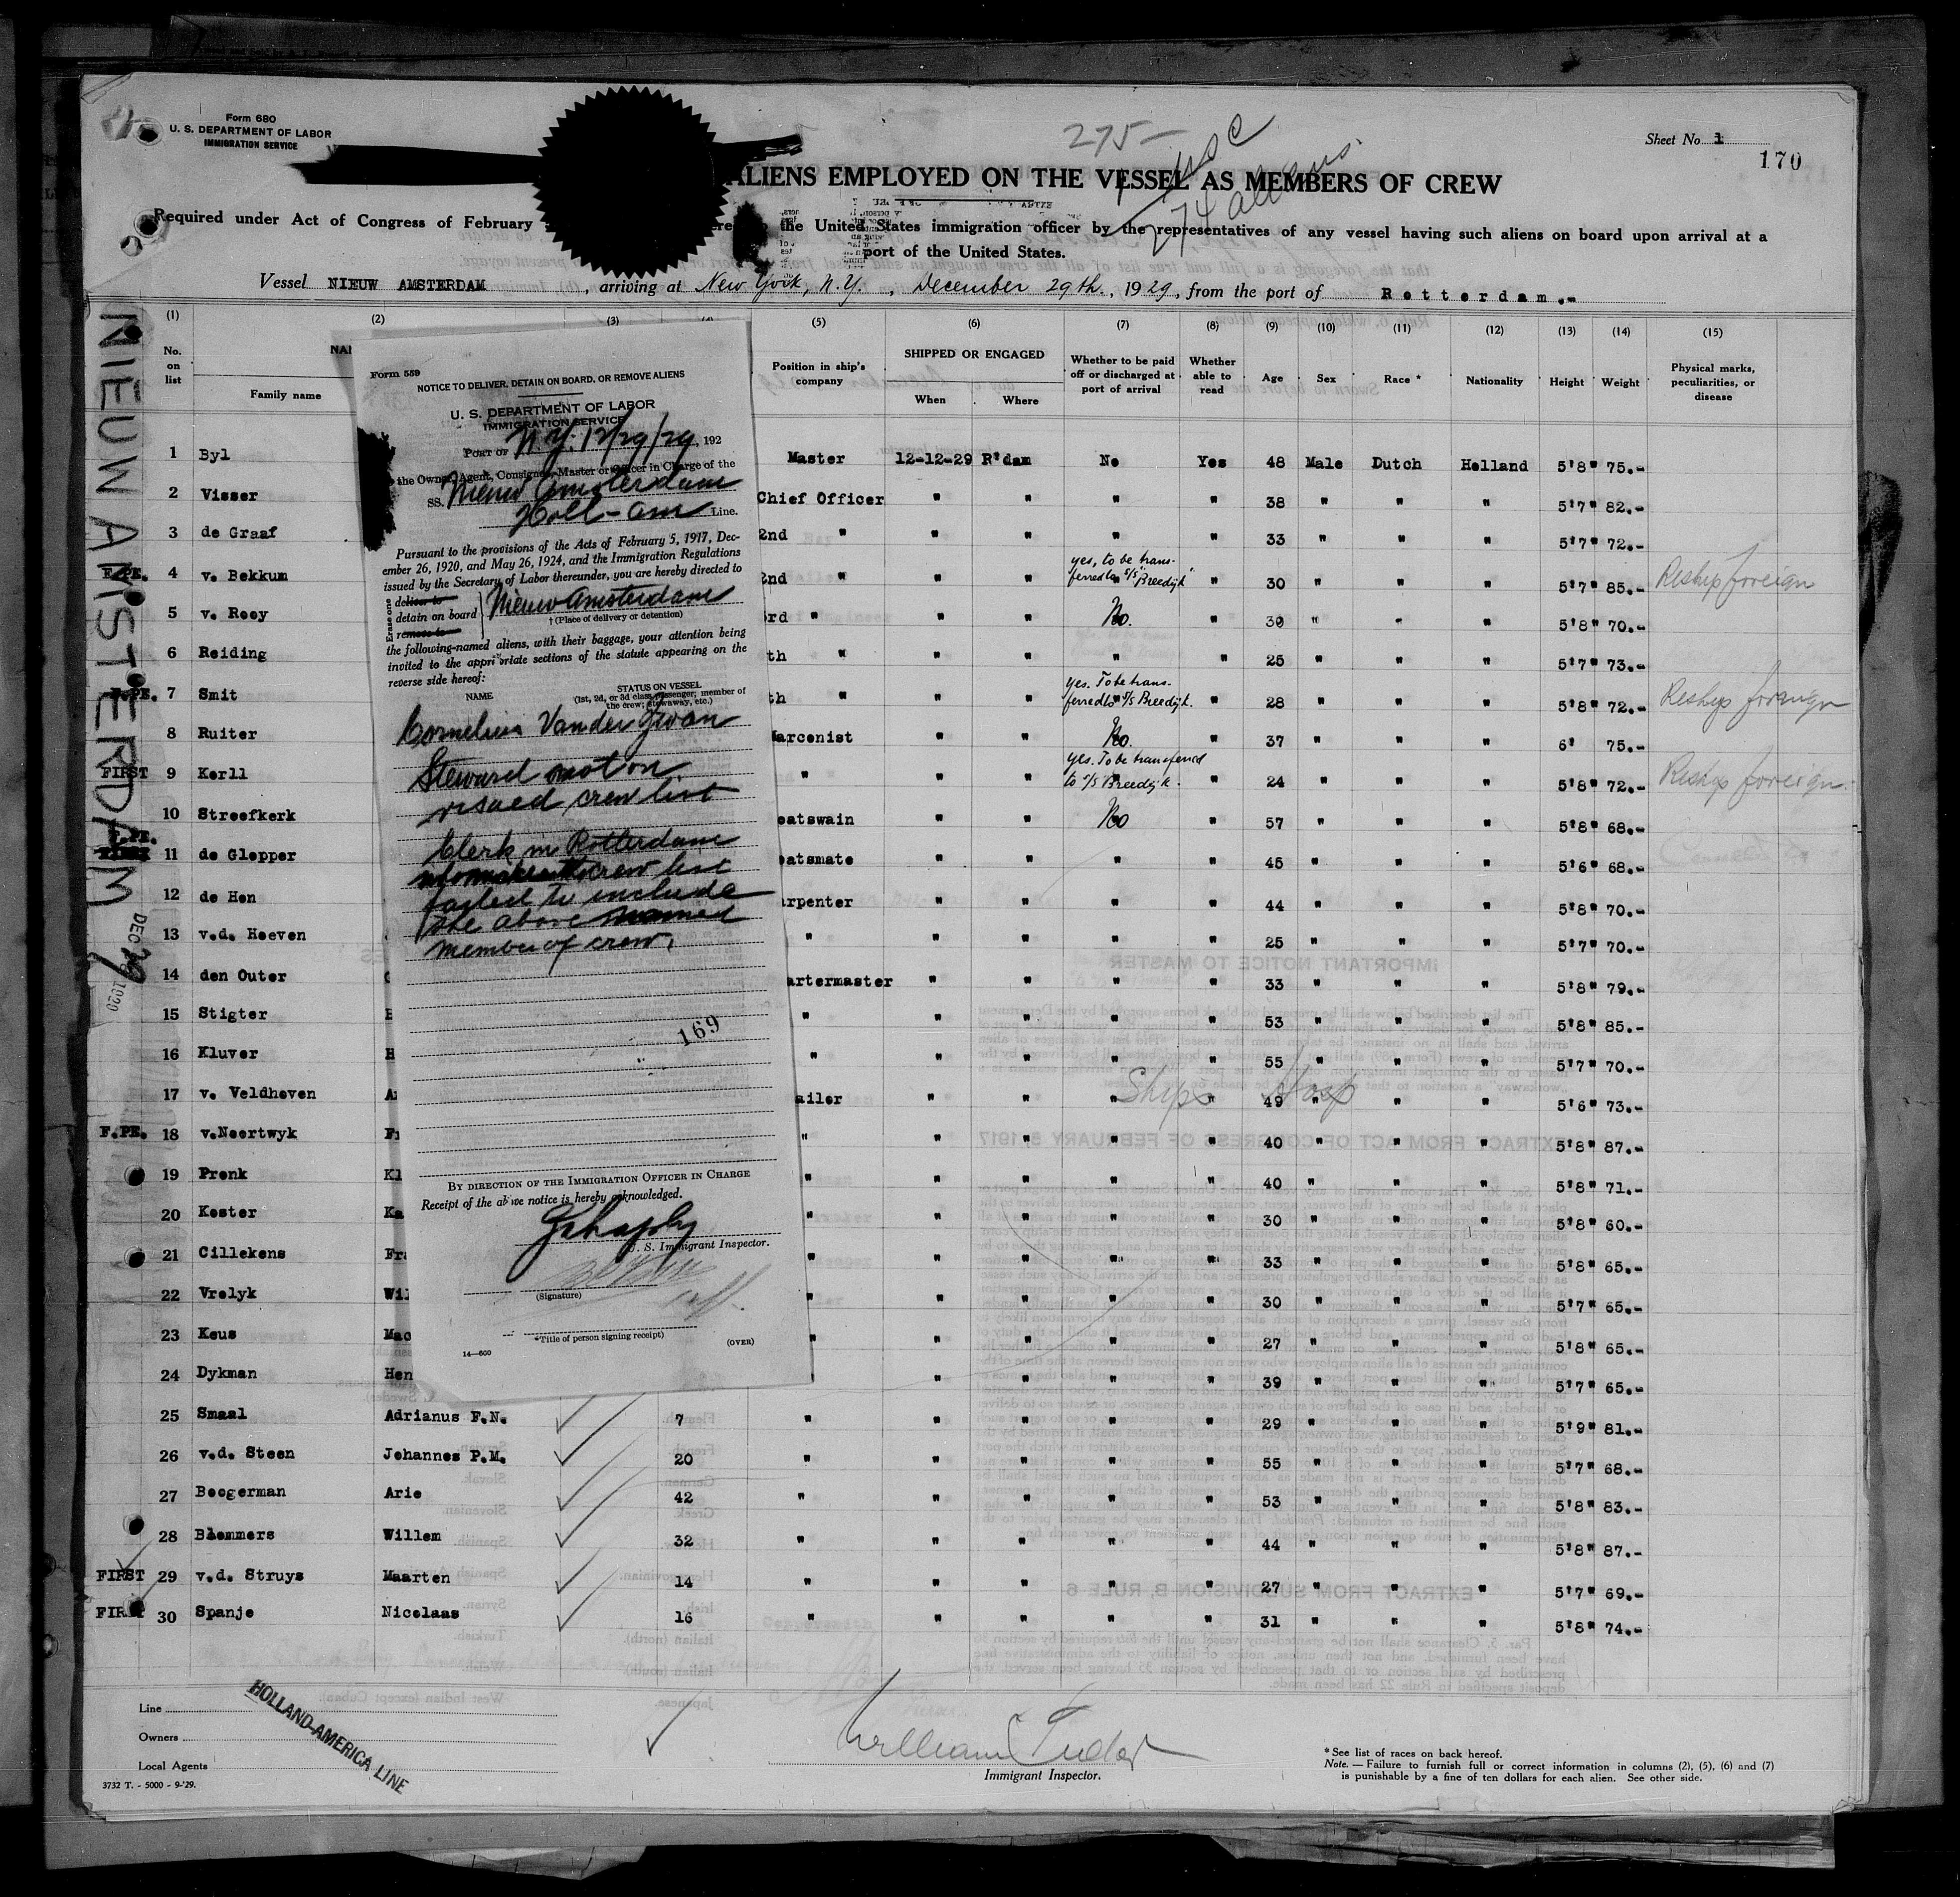 Form 680
U. S. DEPARTMENT OF LABOR
IMMIGRATION SERVICE
275-
1 usc
274 aliens.
Sheet No. 1
170
ALIENS EMPLOYED ON THE VESSEL AS MEMBERS OF CREW
Required under Act of Congress of February the United States immigration officer by the representatives of any vessel having such aliens on board upon arrival at a
port of the United States.
Vessel NIEUW AMSTERDAM, arriving at New York, N.Y., December 29th., 1929, from the port of Rotterdam.-
NIEUW AMSTERDAM
DEC 29 1929
(1) (2) (3) (5) (6) (7) (8) (9) (10) (11) (12) (13) (14) (15)
No. on list
Family name
Position in ship's company
SHIPPED OR ENGAGED
When Where
Whether to be paid off or discharged at port of arrival
Whether able to read
Age Sex Race * Nationality Height Weight
Physical marks, peculiarities, or disease
1 Byl Master 12-12-29 R'dam No Yes 48 Male Dutch Holland 5'8" 75.-
2 Visser Chief Officer " " " " 38 " " " 5'7" 82.-
3 de Graaf 2nd " " " " " 33 " " " 5'7" 72.-
F.PE. 4 v. Bekkum 2nd " " " yes, to be transferred to s/s "Breedijk" " 30 " " " 5'7" 85.- Reship foreign
5 v. Rooy 3rd " " No. " 30 " " " 5'8" 70.-
6 Reiding th " " " " " 25 " " " 5'7" 73.-
F.PE. 7 Smit th " " " yes. To be transferred to s/s Breedijk. " 28 " " " 5'8" 72.- Reship foreign
8 Ruiter Marconist " " No. " 37 " " " 6' 75.-
FIRST 9 Kerll " " " yes. To be transferred to s/s Breedijk. " 24 " " " 5'8" 72.- Reship foreign.
10 Streefkerk oatswain " " No " 57 " " " 5'8" 68.-
F.PE. 11 de Glopper oatsmate " " " " 45 " " " 5'6" 68.-
12 de Hen arpenter " " " " 44 " " " 5'8" 70.-
13 v.d. Hoeven " " " " " 25 " " " 5'7" 70.-
14 den Outer artermaster " " " " 33 " " " 5'8" 79.-
15 Stigter " " " " " 53 " " " 5'8" 85.-
16 Kluver H " " " " " 55 " " " 5'7" 70.-
Ships Hosp
17 v. Veldhoven A ailer " " " " 49 " " " 5'6" 73.-
F.PE. 18 v.Noortwyk F " " " " " 40 " " " 5'8" 87.-
19 Pronk Kl " " " " " 40 " " " 5'8" 71.-
20 Koster Ka " " " " " 30 " " " 5'8" 60.-
21 Cillekens Fra " " " " " 33 " " " 5'8" 65.-
22 Vrolyk Wil " " " " " 30 " " " 5'7" 65.-
23 Keus Mac " " " " " 27 " " " 5'8" 65.-
24 Dykman Hen " " " " 39 " " " 5'7" 65.-
25 Smaal Adrianus F.N. 7 " " " " " 29 " " " 5'9" 81.-
26 v.d. Steen Johannes P.M. 20 " " " " " 55 " " " 5'7" 68.-
27 Boogerman Arie 42 " " " " " 53 " " " 5'8" 83.-
28 Blommers Willem 32 " " " " " 44 " " " 5'8" 87.-
FIRST 29 v.d. Struys Maarten 14 " " " " " 27 " " " 5'7" 69.-
FIRST 30 Spanje Nicolaas 16 " " " " " 31 " " " 5'8" 74.-
Form 559
NOTICE TO DELIVER, DETAIN ON BOARD, OR REMOVE ALIENS
U. S. DEPARTMENT OF LABOR
IMMIGRATION SERVICE
PORT OF N.Y. 12/29/29, 192
the Owner, Agent, Consignee, Master or Officer in Charge of the
SS. Nieuw Amsterdam
Holl-Am Line.
Pursuant to the provisions of the Acts of February 5, 1917, Dec-
ember 26, 1920, and May 26, 1924, and the Immigration Regulations
issued by the Secretary of Labor thereunder, you are hereby directed to
Erase one
deliver to
detain on board Nieuw Amsterdam
remove to
† (Place of delivery or detention)
the following-named aliens, with their baggage, your attention being
invited to the appropriate sections of the statute appearing on the
reverse side hereof:
NAME
STATUS ON VESSEL
(1st, 2d, or 3d class passenger; member of
the crew; stowaway, etc.)
Cornelius Vander Zwan
Steward not on
visaed crew list
Clerk in Rotterdam
who makes crew list
failed to include
the above named
member of crew.
169
BY DIRECTION OF THE IMMIGRATION OFFICER IN CHARGE
Receipt of the above notice is hereby acknowledged.
U. S. Immigrant Inspector.
(Signature)
*Title of person signing receipt)
14-600
(OVER)
Line
Owners
Local Agents
HOLLAND-AMERICA LINE
3732 T. - 5000 - 9-'29.
William Tudor
Immigrant Inspector.
* See list of races on back hereof.
Note. — Failure to furnish full or correct information in columns (2), (5), (6) and (7)
is punishable by a fine of ten dollars for each alien. See other side.